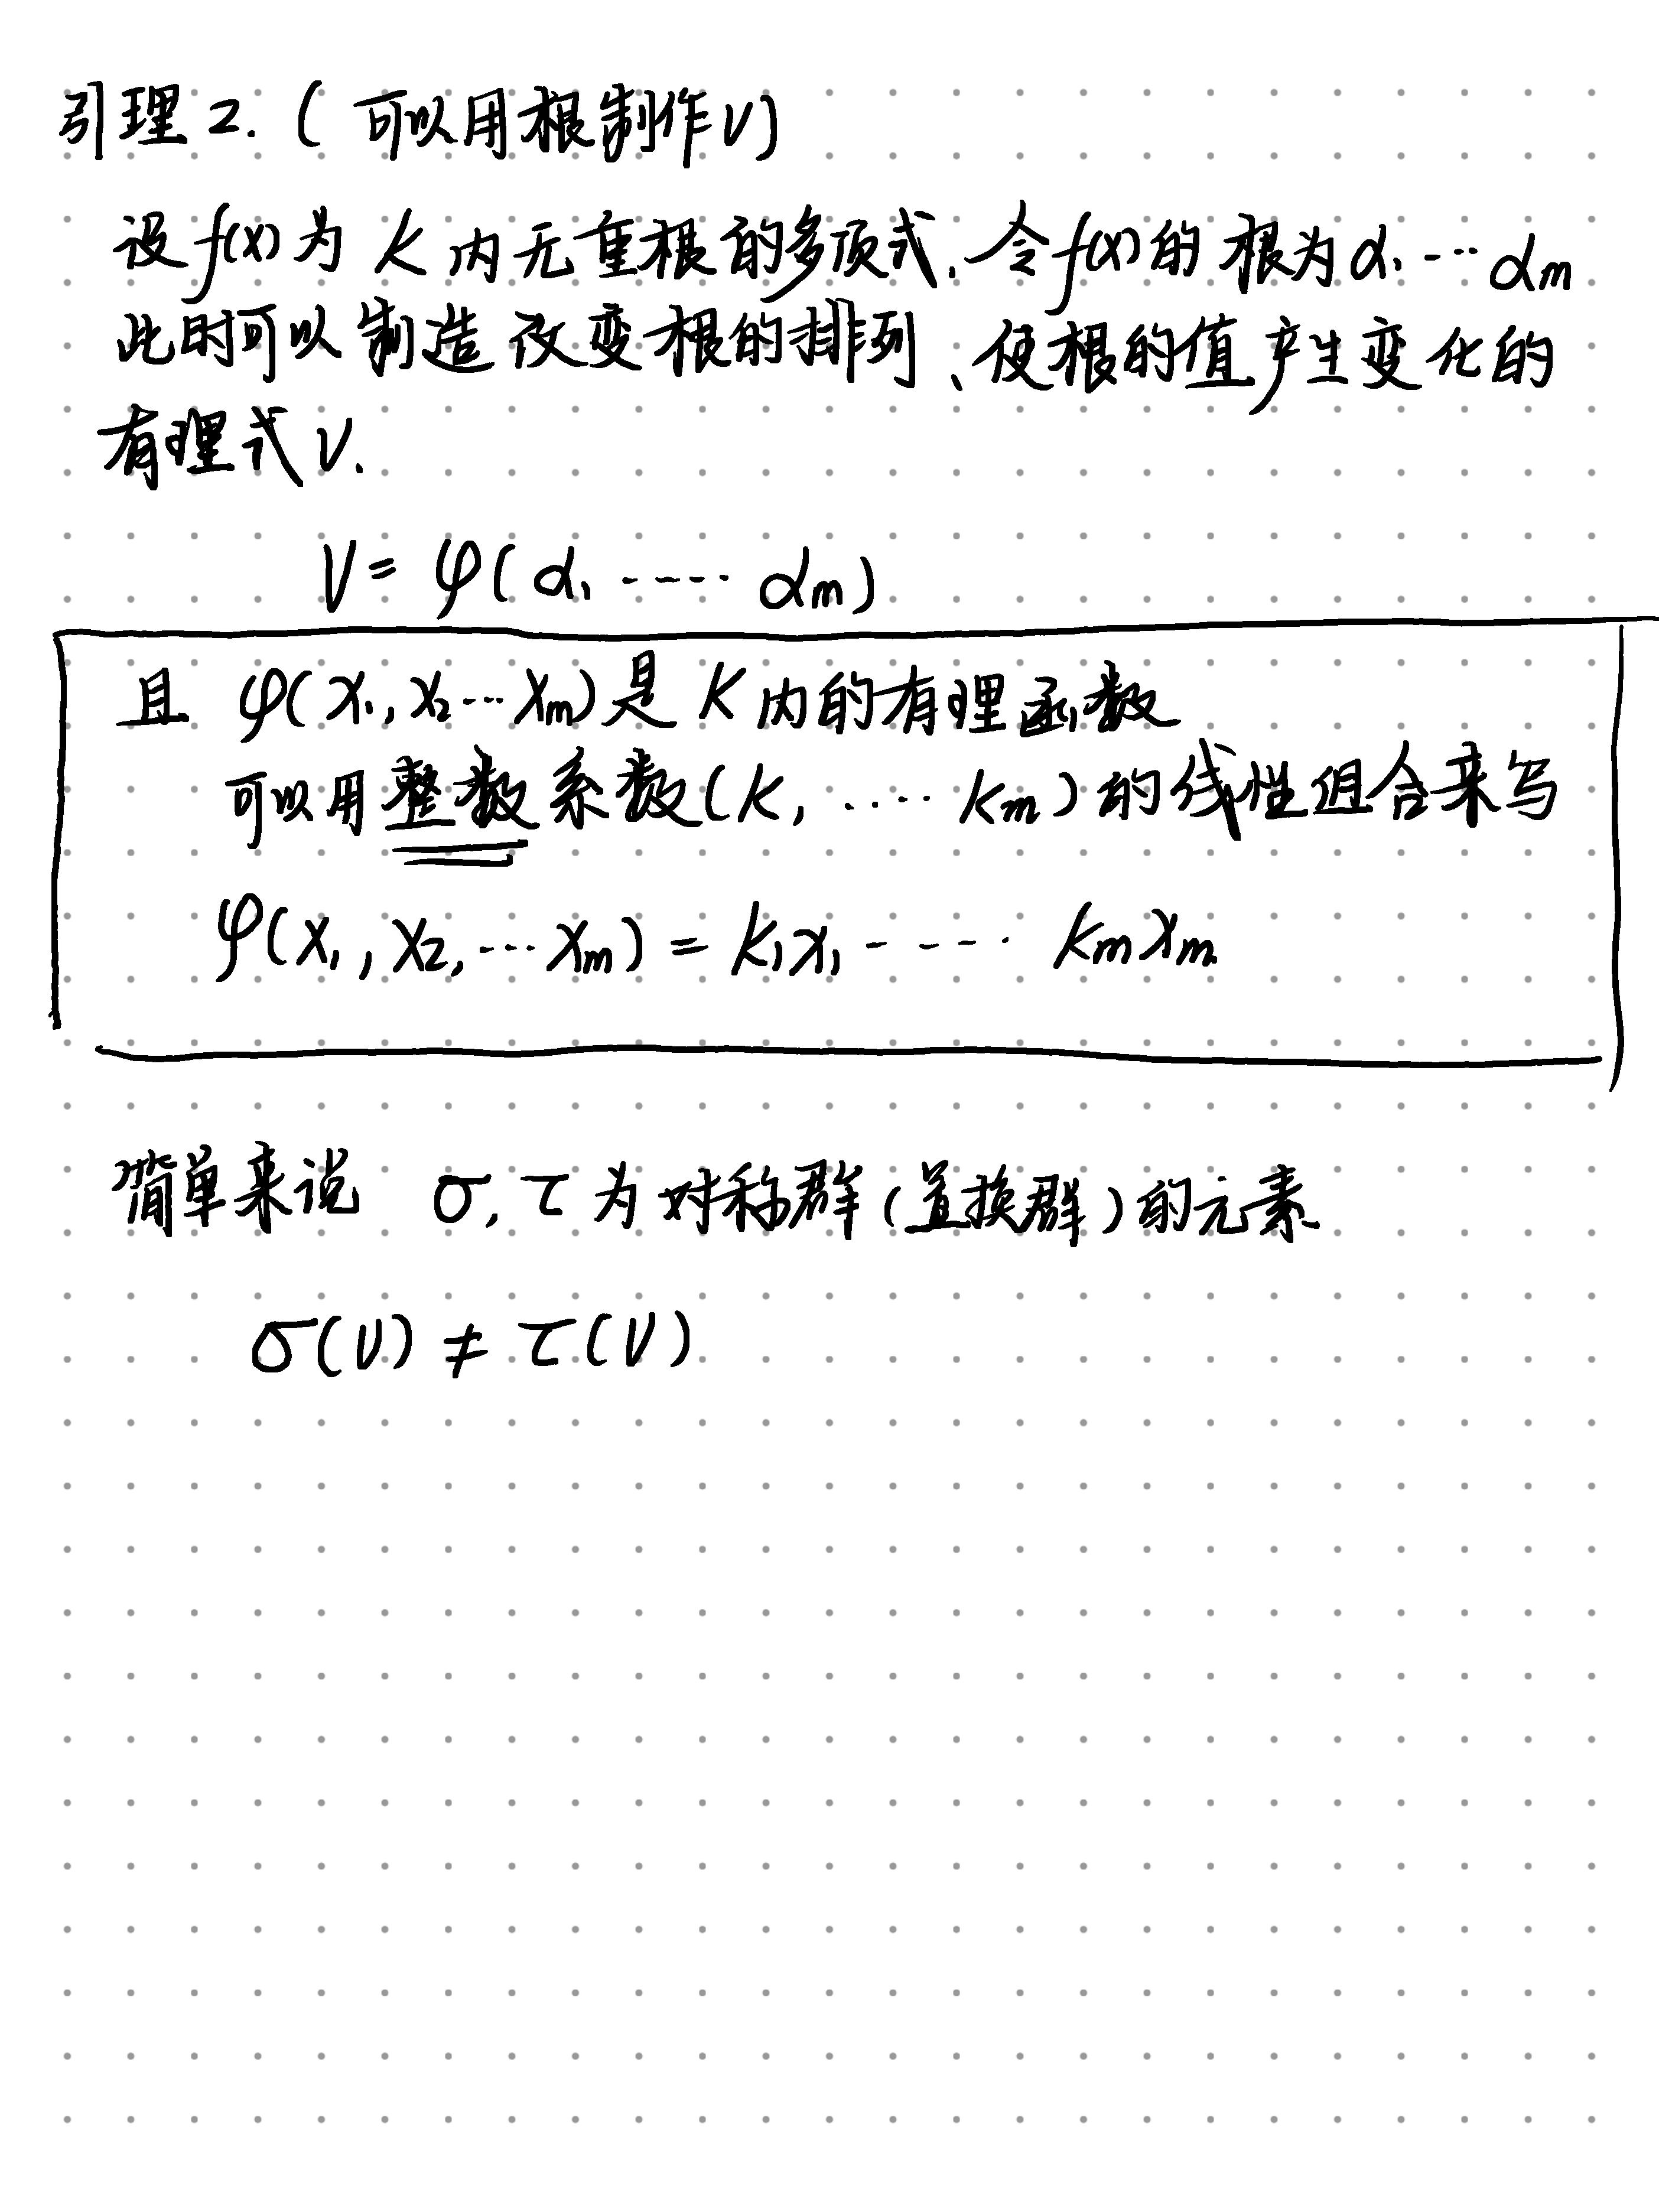 引理2.(可以用根制作V)
设f(x)为K内无重根的多项式、令f(x)的根为α₁---αm
此时可以制造改变根的排列、使根的值产生变化的
有理式V.
V= φ(α₁ ----- αm)
且 φ(x₁,x₂---xm)是K内的有理函数
可以用整数系数(k, ····· km)的线性组合来写
φ(x₁,x₂,---xm)=k₁x₁----- kmxm
简单来说 σ,τ为对称群(置换群)的元素
σ(V) ≠ τ(V)